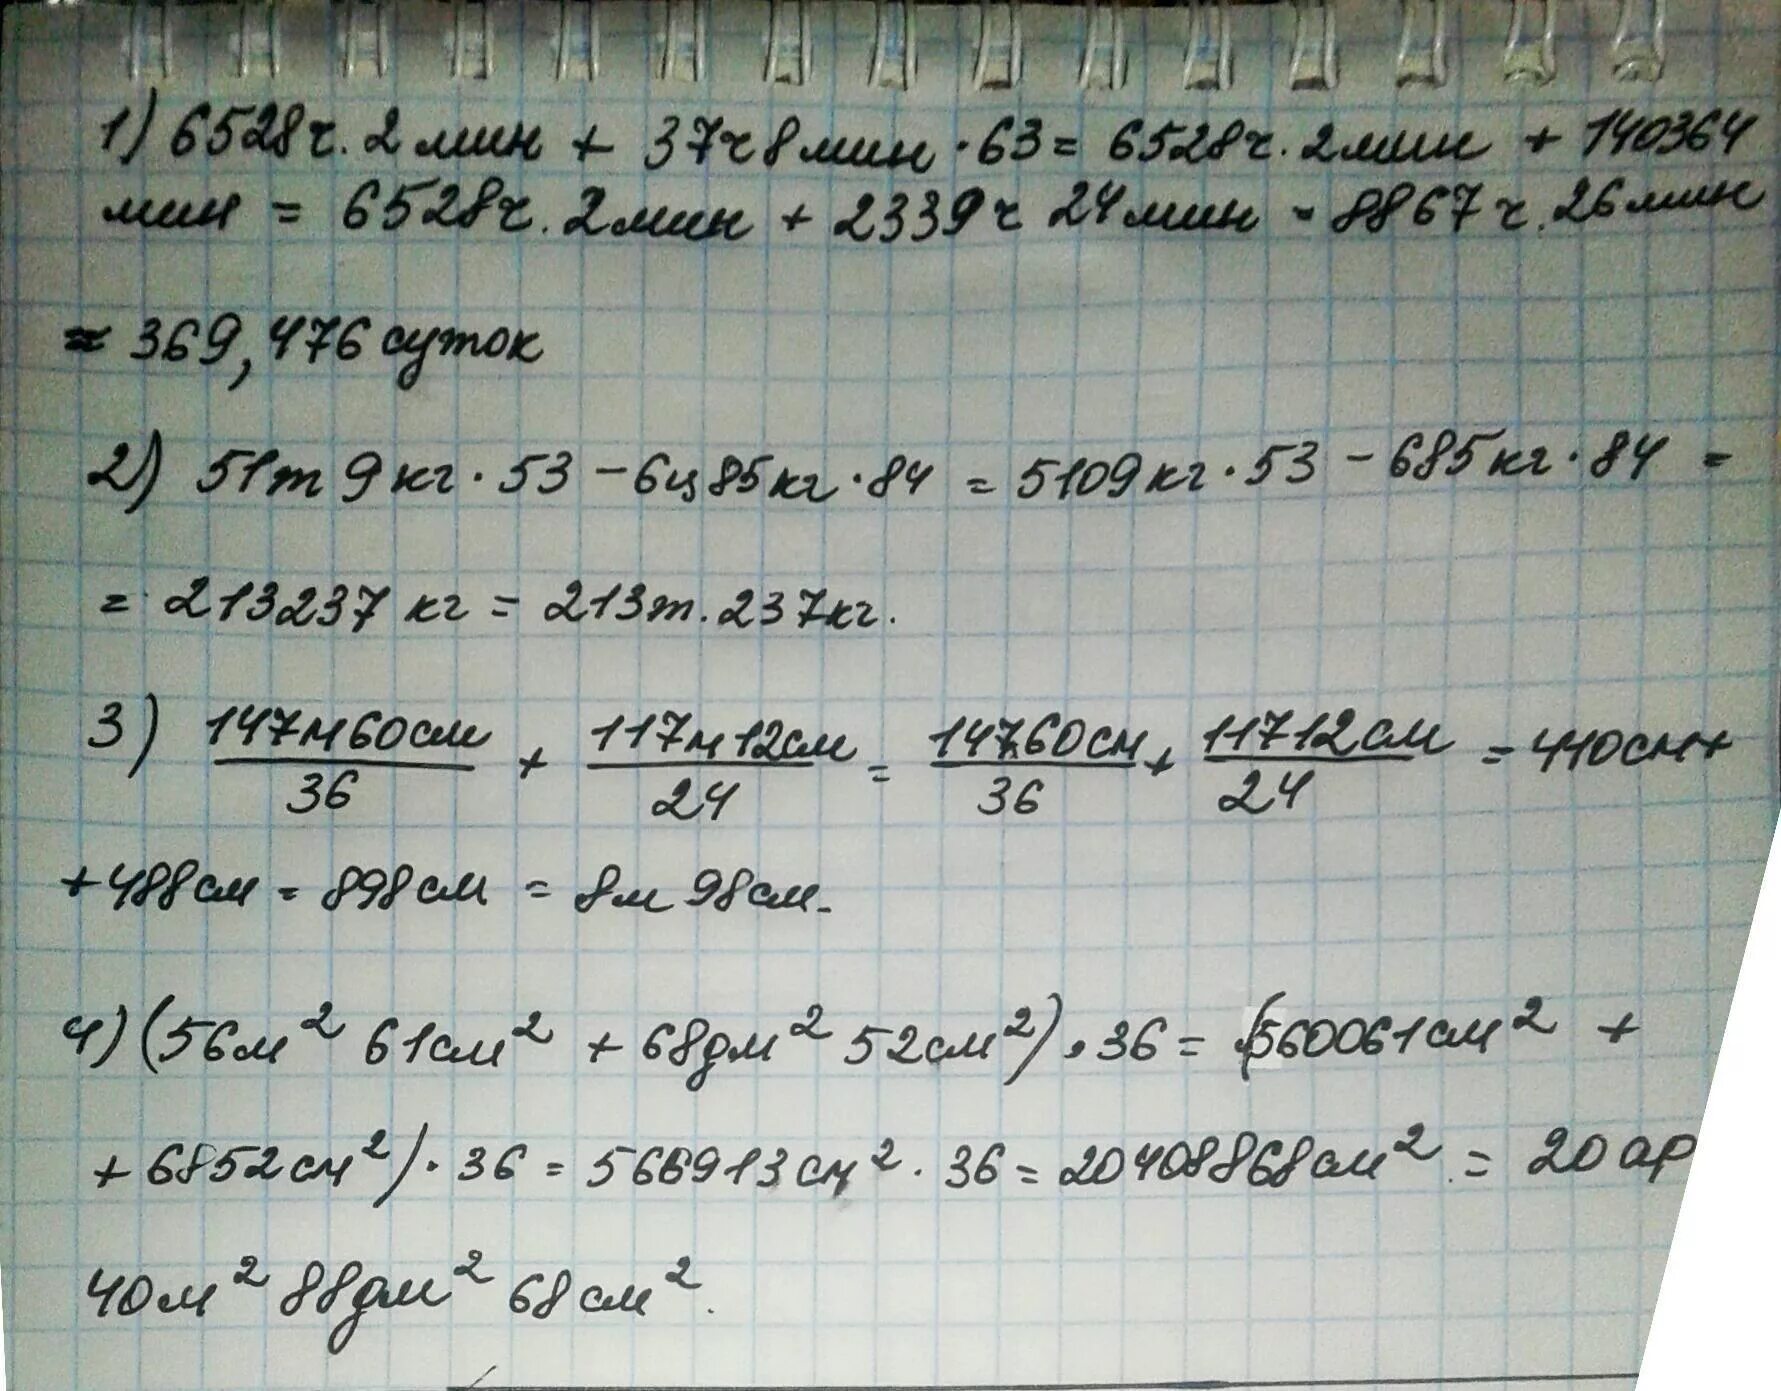 1) 6528ч. 2 мин + 37ч 8 мин · 63 = 6528ч. 2 мин + 140364
мин = 6528ч. 2 мин + 2339ч 24 мин = 8867 ч. 26 мин
≈ 369,476 суток
2) 51т 9 кг · 53 − 6ц 85кг · 84 = 5109кг · 53 − 685кг · 84 =
= 213237 кг = 213т. 237кг.
3) 147м60см/36 + 117м12см/24 = 14760см/36 + 11712см/24 = 410см+
+ 488см = 898см = 8м 98см.
4) (56м² 61см² + 68дм² 52см²) · 36 = (560061см² +
+ 6852см²) · 36 = 566913см² · 36 = 20408868см² = 20ар
40м² 88дм² 68см².